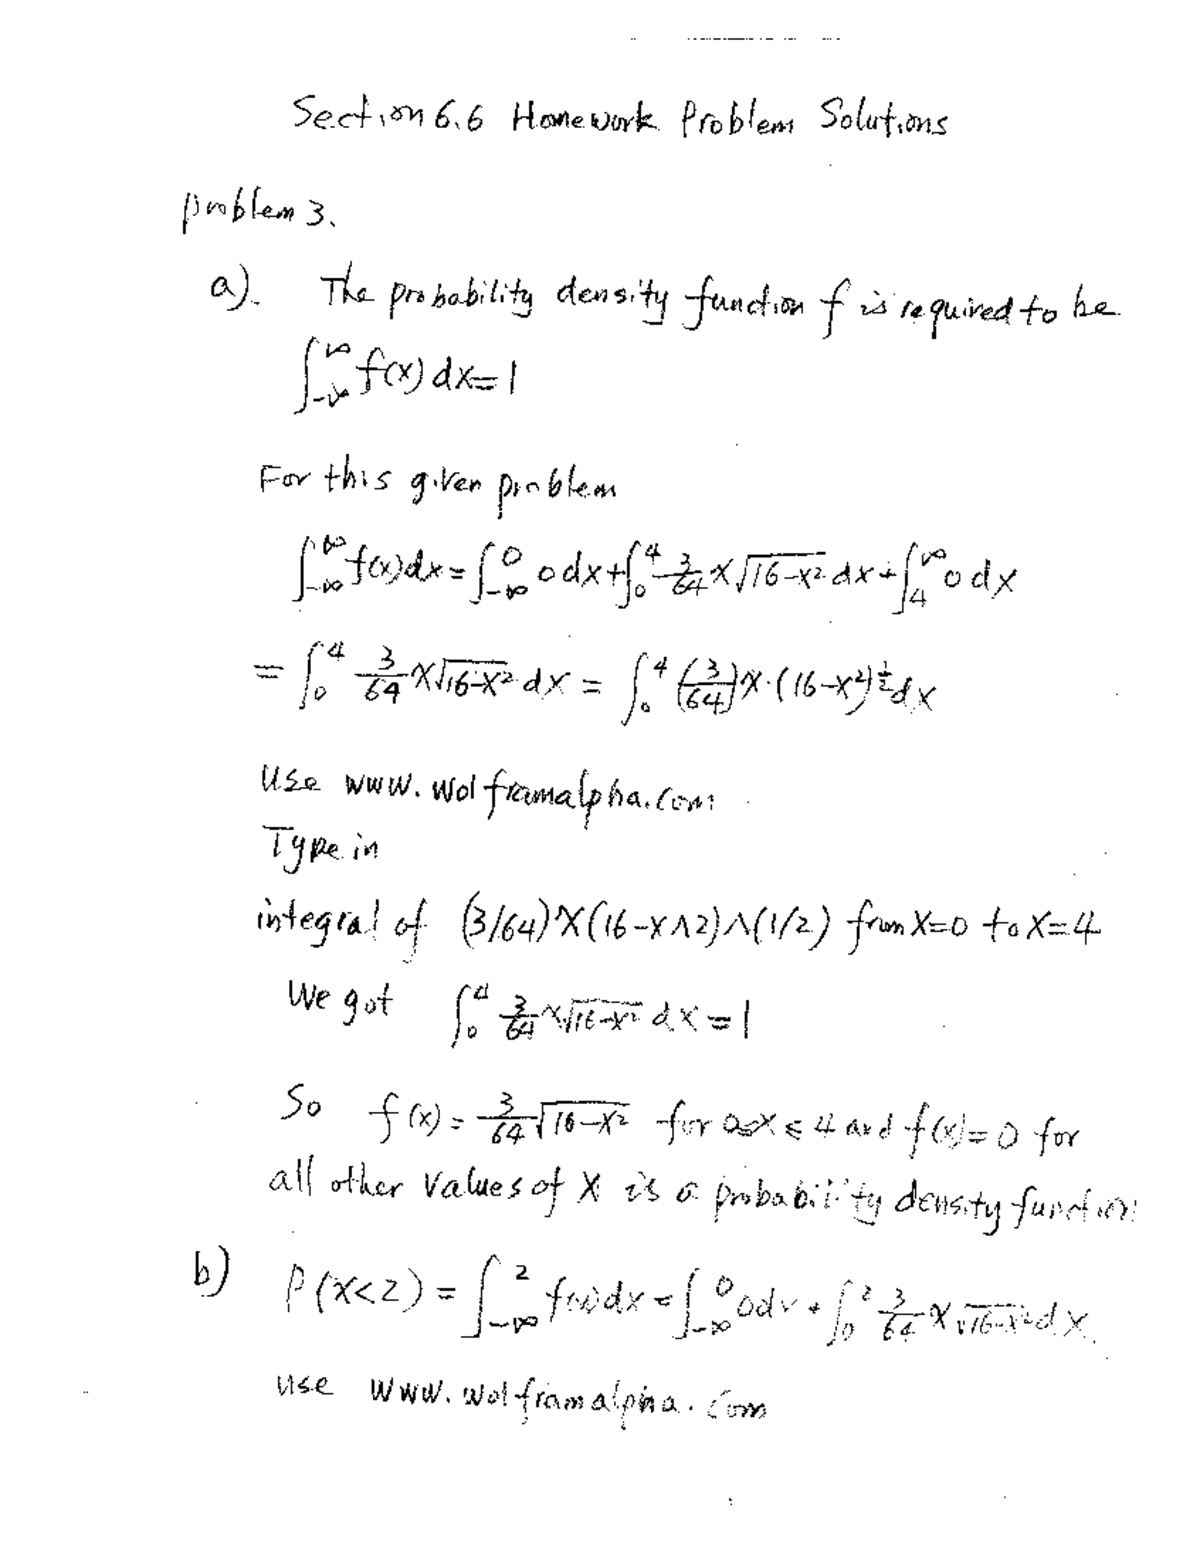 Section 6.6 Homework Problem Solutions
problem 3.
a). The probability density function f is required to be
∫_{-∞}^{∞} f(x) dx = 1
For this given problem
∫_{-∞}^{∞} f(x)dx = ∫_{-∞}^{0} 0 dx + ∫_{0}^{4} 3/64 x √(16-x²) dx + ∫_{4}^{∞} 0 dx
= ∫_{0}^{4} 3/64 x √(16-x²) dx = ∫_{0}^{4} (3/64) x·(16-x²)^{1/2} dx
Use www.wolframalpha.com
Type in
integral of (3/64)X(16-X^2)^(1/2) from X=0 to X=4
We got ∫_{0}^{4} 3/64 x √(16-x²) dx = 1
So f(x) = 3/64 √(16-x²) for 0≤X≤4 and f(x)=0 for
all other values of X is a probability density function
b) P(X<2) = ∫_{-∞}^{2} f(x)dx = ∫_{-∞}^{0} 0dx + ∫_{0}^{2} 3/64 x √(16-x²) dx.
use www.wolframalpha.com